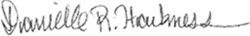 Danielle R. Harkness